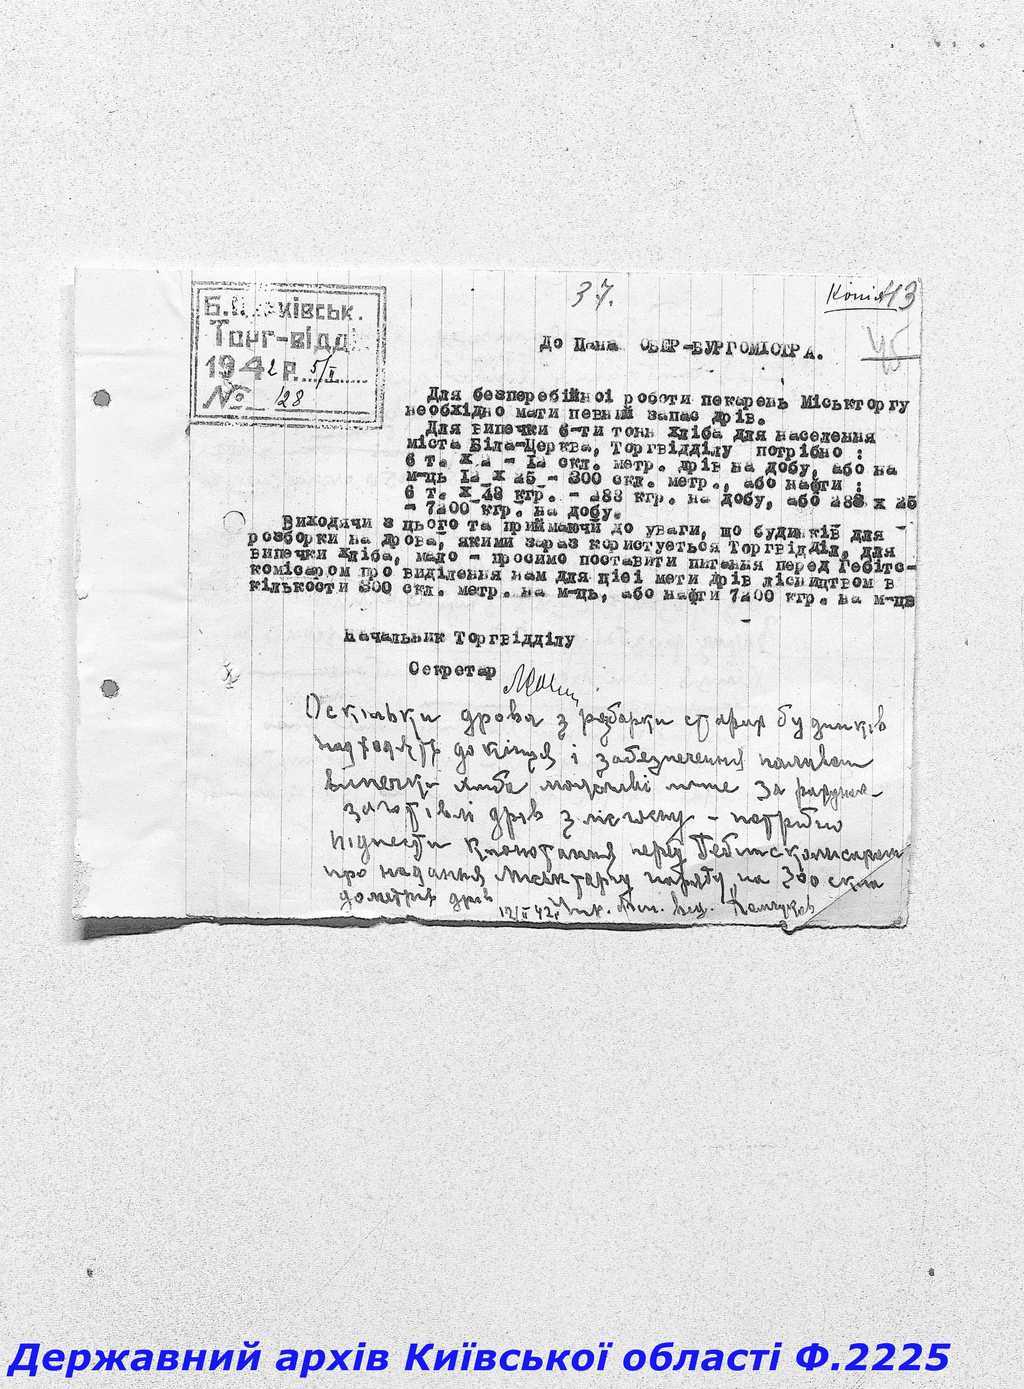 37.
Копія 43
45
Б.Ц ківськ.
Торг-відді
1942 Р. 5/II
№ 128
До Пана ОБЕР-БУРГОМІСТРА.
Для безперебійної роботи пекарень Міськторгу
необхідно мати певний запас дрів.
Для випечки 6-ти тонн хліба для населення
міста Біла-Церква, Торгвідділу потрібно :
6 т. х 2 - 12 скл. метр. дрів на добу, або на
м-ць 12 х 25 - 300 скл. метр., або нафти :
6 т. х 48 кгр. - 288 кгр. на добу, або 288 х 25
- 7200 кгр. на добу.
Виходячи з цього та приймаючи до уваги, що будинків для
розборки на дрова, якими зараз користується Торгвідділ, для
випечки хліба, мало - просимо поставити питання перед Гебітс-
комісаром про виділення нам для цієї мети дрів лісництвом в
кількости 300 скл. метр. на м-ць, або нафти 7200 кгр. на м-ць
Начальник Торгвідділу
Секретар
Оскільки дрова з розборки старих будинків
надходять до кінця і забезпечення паливом
випечки хліба можливі лише за рахунок
заготівлі дрів з лісу - потрібно
піднести клопотання перед Гебітскомісаром
про надання Міськторгу наряду на 300 скла
дометрів дрів
12/II 42
Державний архів Київської області Ф.2225